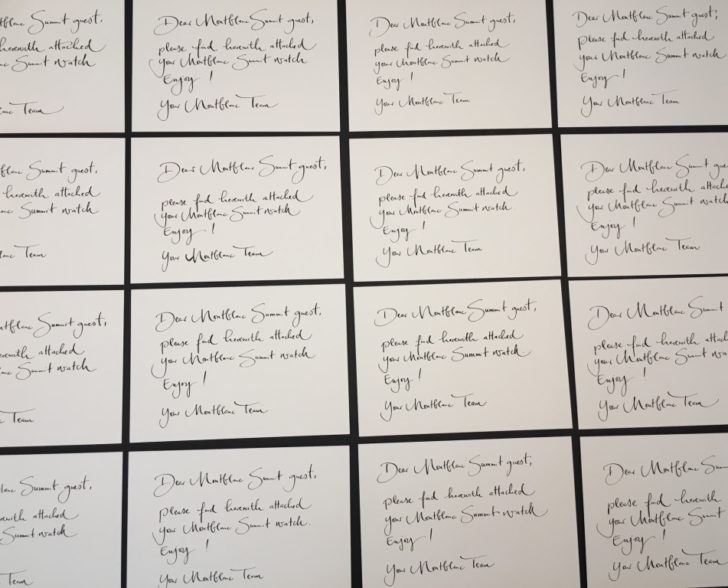 Summit guest,
herewith attached
Summit watch
Team
Dear Montblanc Summit guest,
please find herewith attached
your Montblanc Summit watch
Enjoy !
Your Montblanc Team
Dear Montblanc Summit guest,
please find herewith attached
your Montblanc Summit watch
Enjoy !
Your Montblanc Team
Dear Montblanc Summit guest,
please find herewith attached
your Montblanc Summit watch
Enjoy !
Your Montblanc Team
Summit guest,
herewith attached
Summit watch
Team
Dear Montblanc Summit guest,
please find herewith attached
your Montblanc Summit watch
Enjoy !
Your Montblanc Team
Dear Montblanc Summit guest,
please find herewith attached
your Montblanc Summit watch.
Enjoy !
Your Montblanc Team
Dear Montblanc Summit
please find herewith
your Montblanc Summit watch
Enjoy !
Your Montblanc Team
Summit guest,
attached
Summit watch
Team
Dear Montblanc Summit guest,
please find herewith attached
your Montblanc Summit watch
Enjoy !
Your Montblanc Team
Dear Montblanc Summit guest,
please find herewith attached
your Montblanc Summit watch
Enjoy !
Your Montblanc Team
Dear Montblanc Summit
please find herewith
your Montblanc Summit
Enjoy !
Your Montblanc Team
Summit guest,
attached
Summit watch
Team
Dear Montblanc Summit guest,
please find herewith attached
your Montblanc Summit watch.
Enjoy !
Your Montblanc Team
Dear Montblanc Summit guest,
please find herewith attached
your Montblanc Summit watch
Enjoy !
Your Montblanc Team
Dear Montblanc
please find herewith
your Montblanc Summit
Enjoy !
Your Montblanc Team